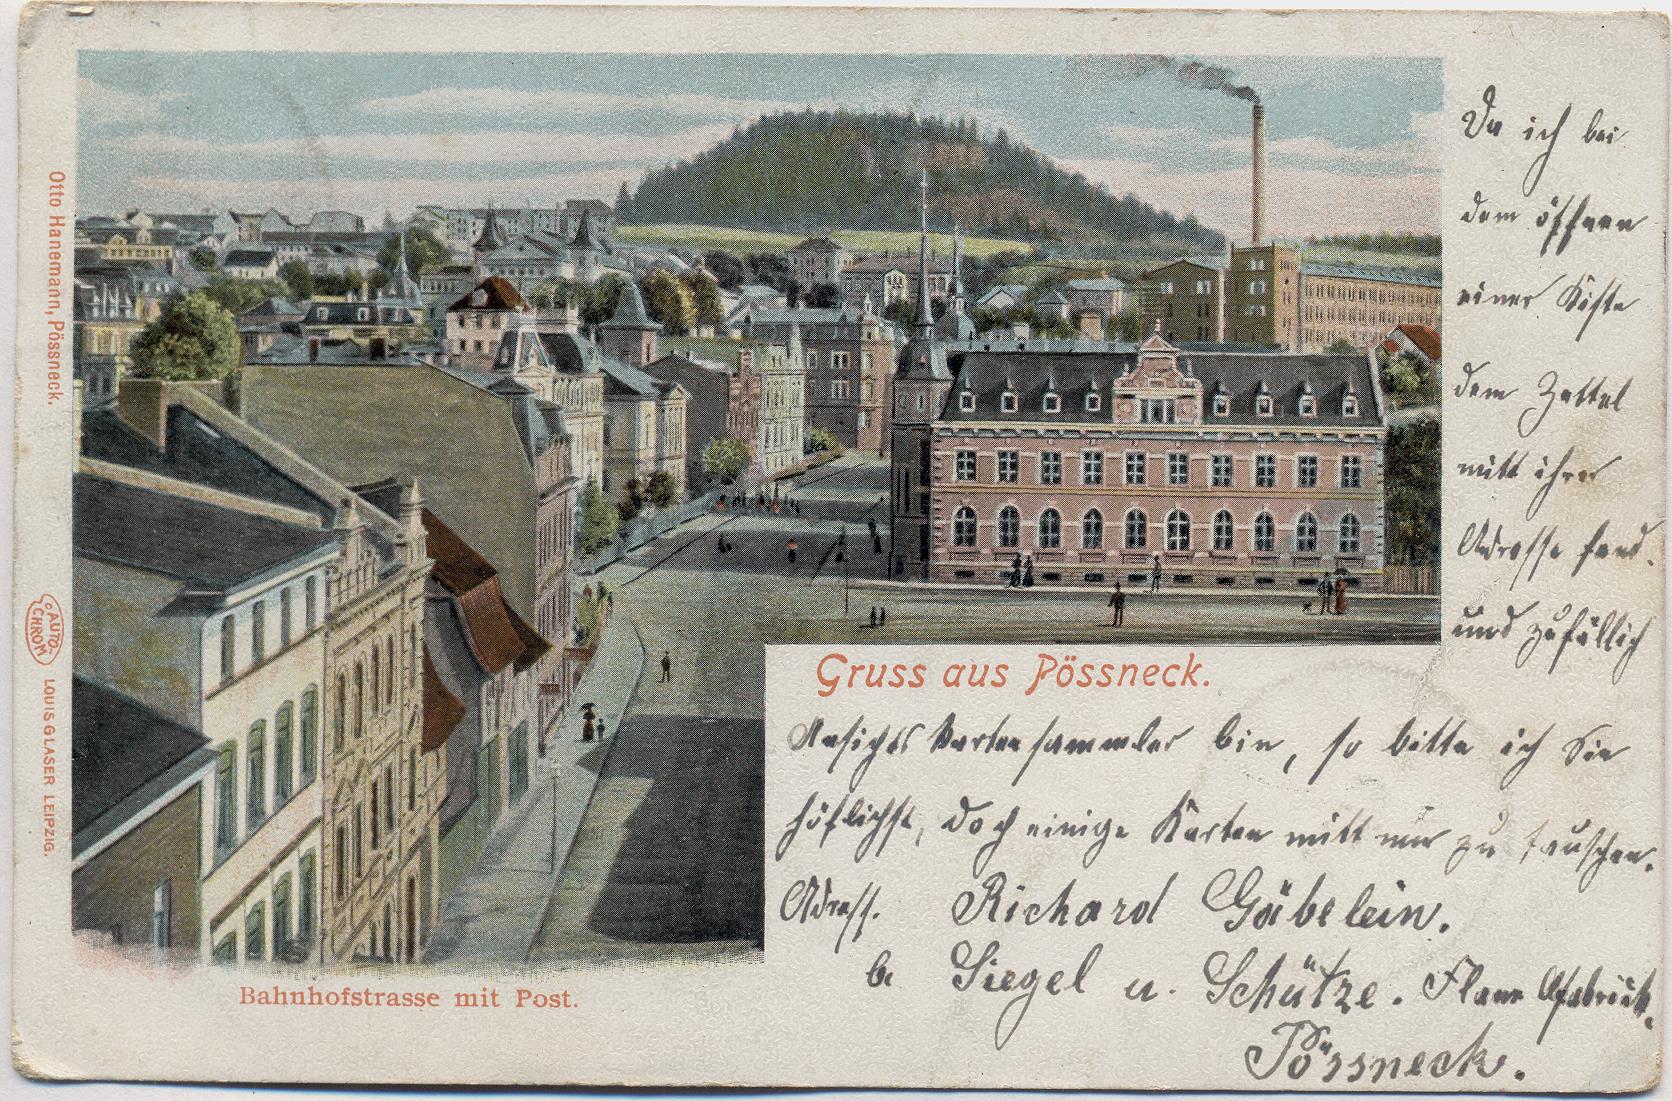 Da ich bei
dem öffnen
einer Kiste
dem Zettel
mitt ihrer
Adresse fand.
und zufällig
Gruss aus Pössneck.
Ansichts Kartensammler bin, so bitte ich Sie
höflichst, doch einige Karten mitt mir zu tauschen.
Adress. Richard Gäbelein.
b. Siegel u. Schütze.
Pössneck.
Bahnhofstrasse mit Post.
Otto Hanemann, Pössneck.
AUTO-
CHROM
LOUIS GLASER LEIPZIG.